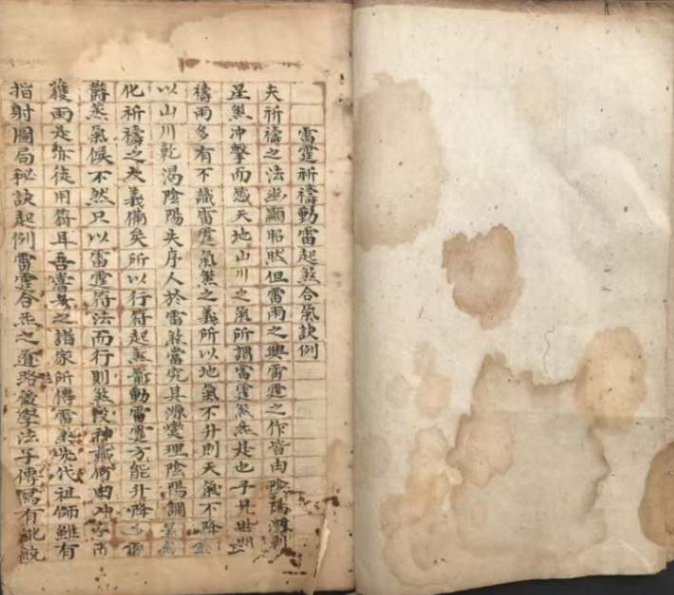 雷霆祈禱動雷起煞合氣訣例
夫祈禱之法幽顯昭然但雷雨之興雷霆之作皆由陰陽激剝
星煞沖擊而感天地山川之氣所謂雷霆煞炁是也予見世間
禱雨多有不識雷霆氣煞之義所以地氣不升則天氣不降
以山川乾渴陰陽失序人於雷煞當究其源燮理陰陽調
化祈禱之大義備矣所以行符起煞嚴動雷霆方能升降
欝蒸氣候不然只以雷霆符法而行則煞沒神藏何由
獲雨是亦徒用符耳吾嘗之諸家所傳雷先代祖師雖有
指射圖局秘訣起例雷霆合炁之道路後學法子傳寫有